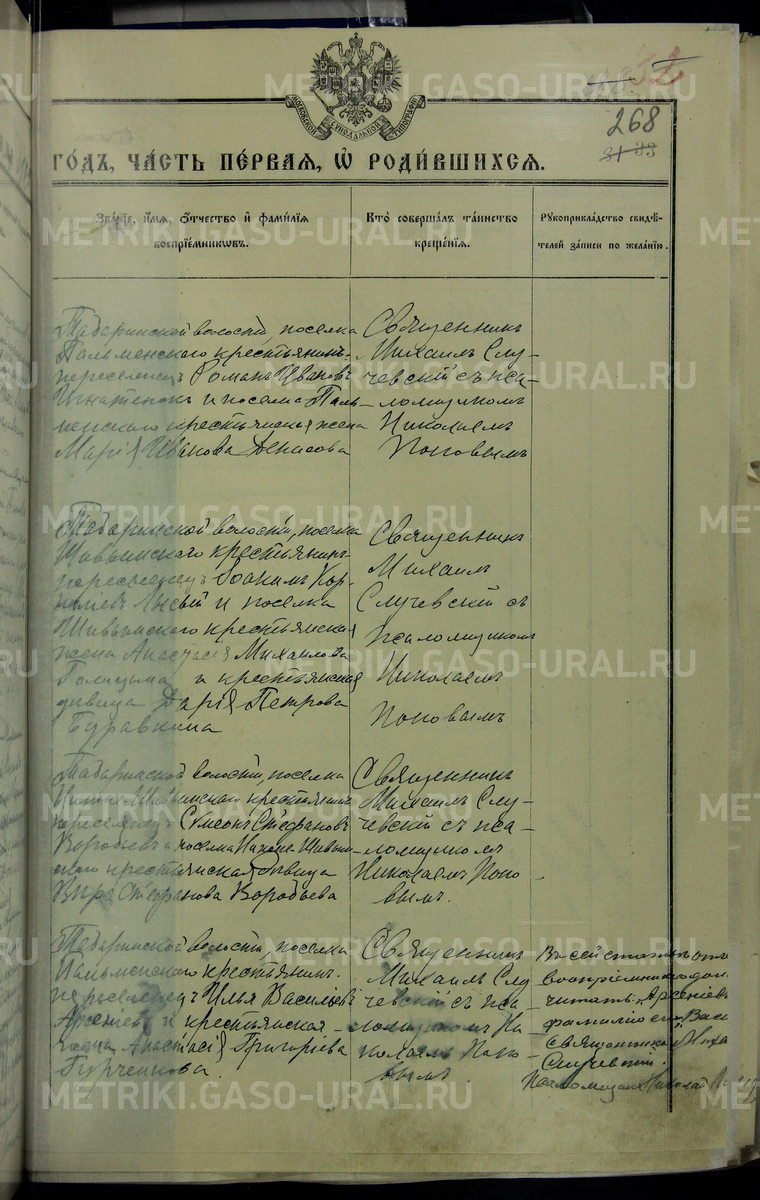 268
31 33
МОСКОВСКОЙ СѴНОДАЛЬНОЙ ТИПОГРАФІИ
ГО́ДЪ, ЧА́СТЬ ПЕ́РВАЯ, Ѡ РОДИ́ВШИХСѦ.
Зва́нїе, и́мѧ, о́тчество и҆ фами́лїѧ
воспрїе́мникѡвъ.
Кто̀ соверша́лъ та́инство
креще́нїѧ.
Рꙋкоприкла́дство свидѣ́-
телей за́писи по жела́нїю.
Табаринской волости, поселка
Пальменского крестьянинъ-
переселецъ Романъ Ивановъ
Игнатенокъ и поселка Паль-
менского крестьянская жена
Марія Иванова Денисова
Священникъ
Михаилъ Слу-
чевскій съ пса-
ломщикомъ
Николаемъ
Поповымъ
Табаринской волости, поселка
крестьянинъ-
переселецъ Іоакимъ Кор-
и поселка
крестьянская
жена Анастасія Михаилова
Голицына и крестьянская
дѣвица Дарія Петрова
Буравкина
Священникъ
Михаилъ
Случевскій съ
псаломщикомъ
Николаемъ
Поповымъ
Табаринской волости, поселка
крестьянинъ
переселецъ Симеонъ Стефановъ
Воробьевъ и поселка
крестьянская дѣвица
Вѣра Стефанова Воробьева
Священникъ
Михаилъ Слу-
чевскій съ пса-
ломщикомъ
Николаемъ Попо-
вымъ.
Табаринской волости, поселка
Пальменского крестьянинъ-
переселецъ Илья Васильевъ
Арсеніевъ и крестьянская
жена Анастасія Григоріева
Священникъ
Михаилъ Слу-
чевскій съ пса-
ломщикомъ Ни-
колаемъ Попо-
вымъ.
Въ сей статьѣ
воспріемника
читать: "Арсеніевъ
фамилію его Васи
священникъ Миха
Случевскій.
Псаломщикъ Николай
METRIKI.GASO-URAL.RU